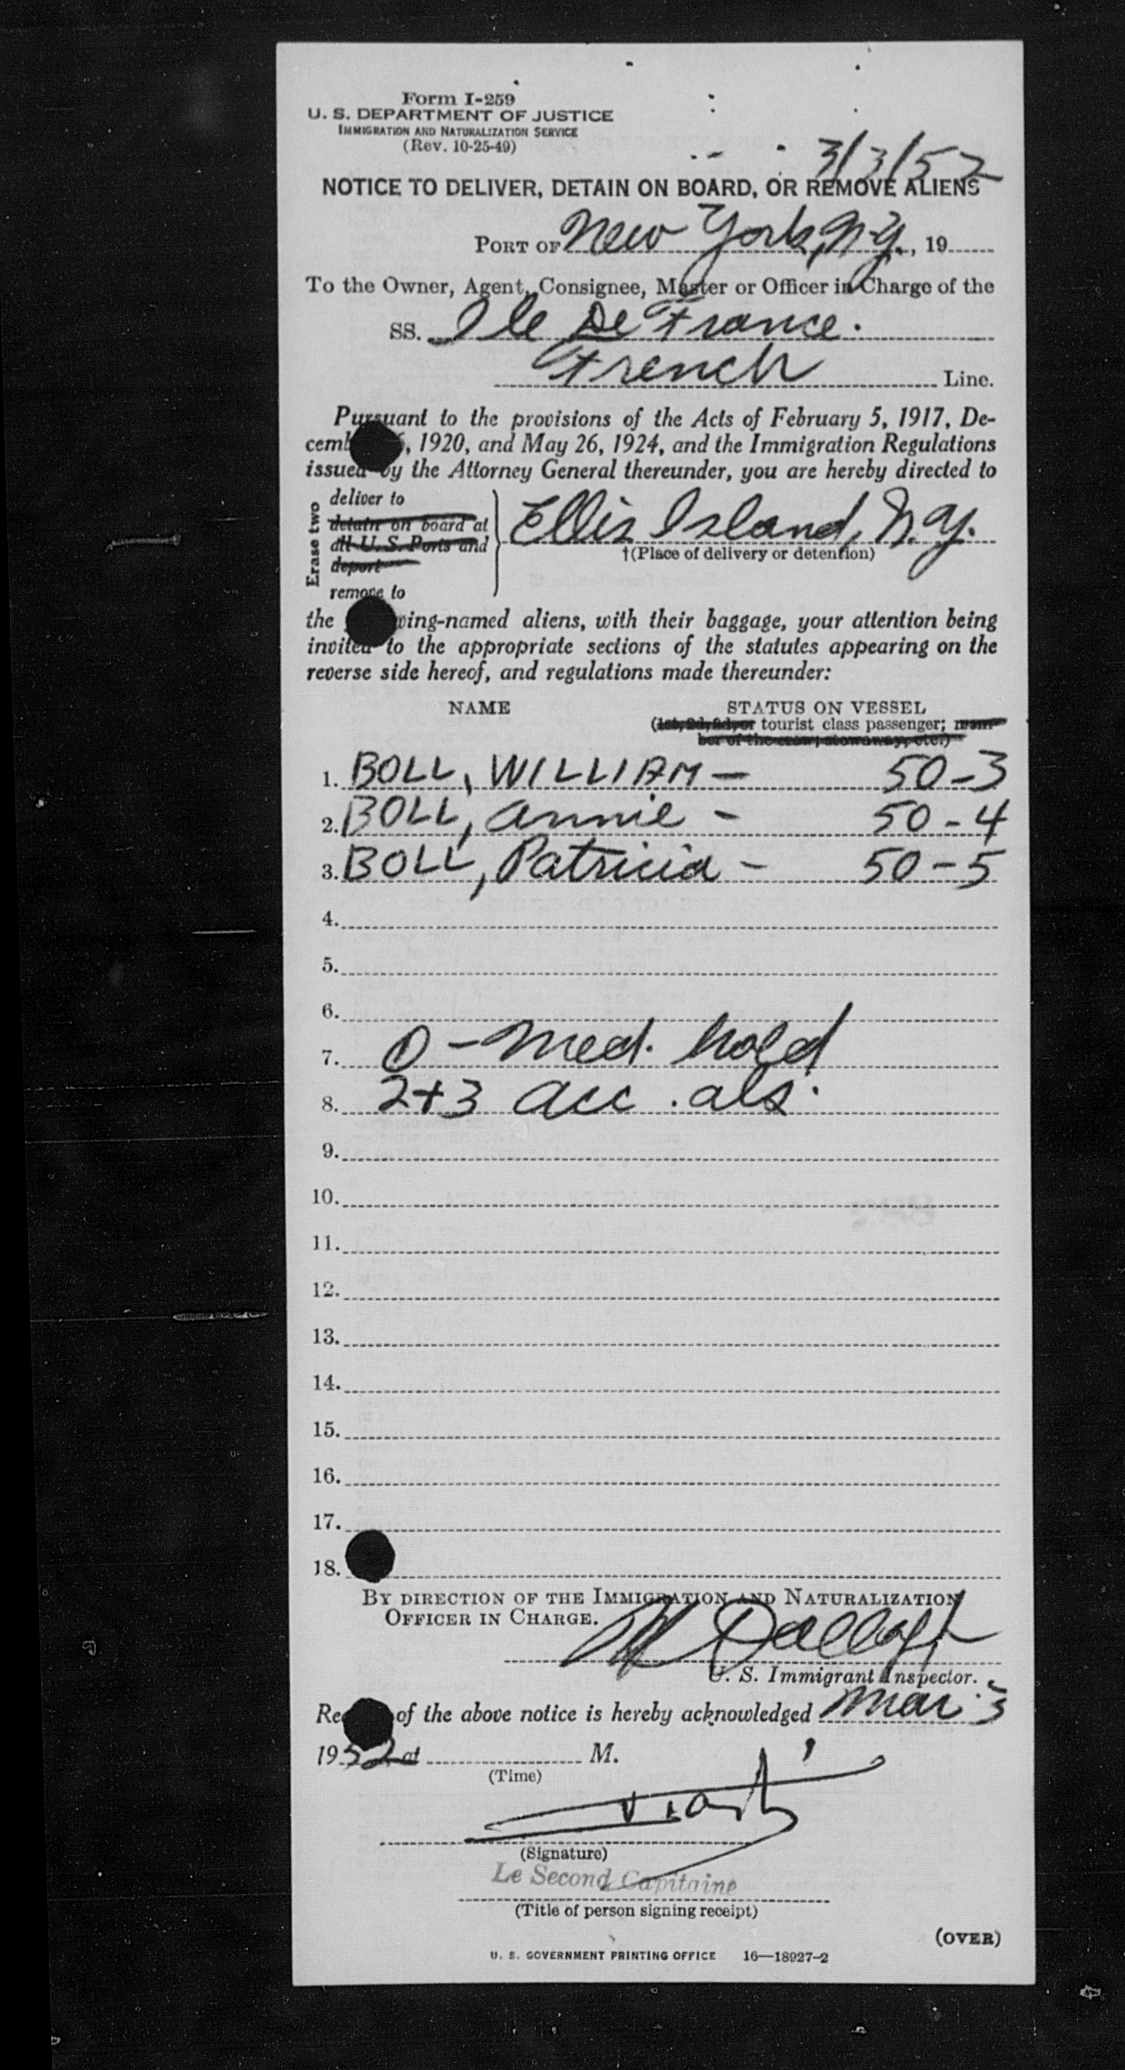 Form I-259
U. S. DEPARTMENT OF JUSTICE
IMMIGRATION AND NATURALIZATION SERVICE
(Rev. 10-25-49)
3/3/52
NOTICE TO DELIVER, DETAIN ON BOARD, OR REMOVE ALIENS
PORT OF New York, N.Y., 19
To the Owner, Agent, Consignee, Master or Officer in Charge of the
SS. Ile De France.
French Line.
Pursuant to the provisions of the Acts of February 5, 1917, De-
cemb , 1920, and May 26, 1924, and the Immigration Regulations
issued by the Attorney General thereunder, you are hereby directed to
Erase two
deliver to
detain on board at
all U. S. Ports and
deport
remove to
Ellis Island, N.Y.
†(Place of delivery or detention)
the wing-named aliens, with their baggage, your attention being
invited to the appropriate sections of the statutes appearing on the
reverse side hereof, and regulations made thereunder:
NAME STATUS ON VESSEL
(1st, 2d, 3d, or tourist class passenger; mem-
ber of the crew; stowaway, etc.)
1. BOLL, WILLIAM — 50-3
2. BOLL, Annie - 50-4
3. BOLL, Patricia - 50-5
4.
5.
6.
7. 0 - Med. hold
8. 2+3 acc. als.
9.
10.
11.
12.
13.
14.
15.
16.
17.
18.
BY DIRECTION OF THE IMMIGRATION AND NATURALIZATION
OFFICER IN CHARGE.
U. S. Immigrant Inspector.
Re of the above notice is hereby acknowledged Mar. 3
1952 at M.
(Time)
(Signature)
Le Second Capitaine
(Title of person signing receipt)
(OVER)
U. S. GOVERNMENT PRINTING OFFICE 16—18927-2